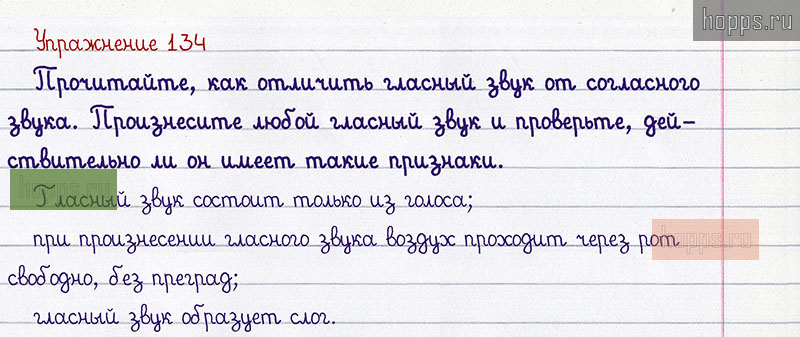 hopps.ru
Упражнение 134
Прочитайте, как отличить гласный звук от согласного
звука. Произнесите любой гласный звук и проверьте, дей-
ствительно ли он имеет такие признаки.
hopps.ru
Гласный звук состоит только из голоса;
при произнесении гласного звука воздух проходит через рот
hopps.ru
свободно, без преград;
гласный звук образует слог.